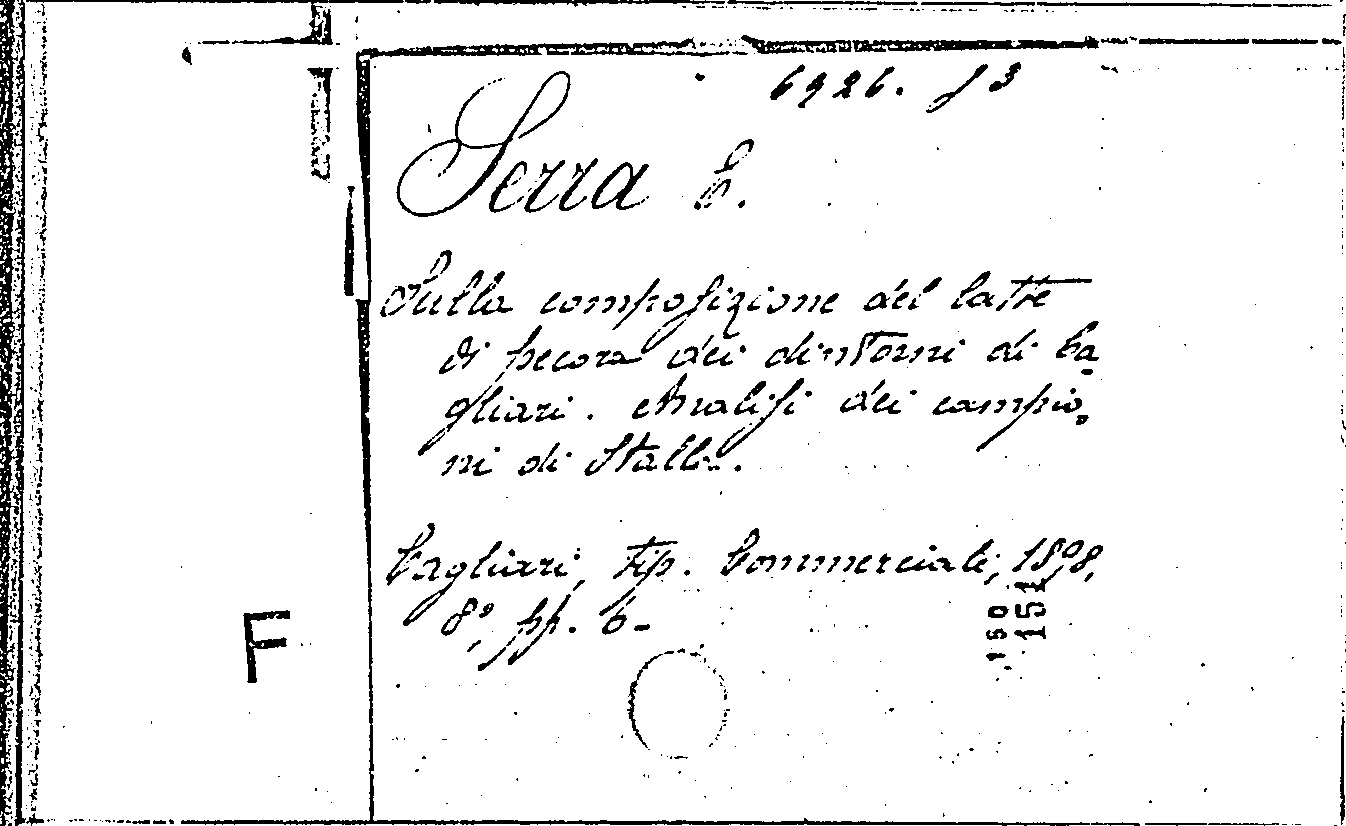 6926. f 3
Serra E.
Sulla composizione del latte
di pecora dei dintorni di Ca-
gliari. Analisi dei campio-
ni di Stalla.
Cagliari, tip. Commerciale, 1898,
8°, pp. 6-
150
151
F